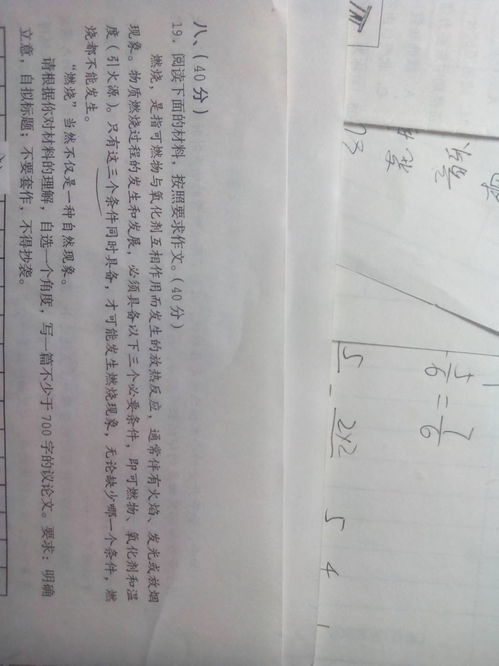 八、(40分)
19. 阅读下面的材料，按照要求作文。(40分)
燃烧，是指可燃物与氧化剂互相作用而发生的放热反应，通常伴有火焰、发光或放烟
现象。物质燃烧过程的发生和发展，必须具备以下三个必要条件，即可燃物、氧化剂和温
度（引火源）。只有这三个条件同时具备，才可能发生燃烧现象，无论缺少哪一个条件，燃
烧都不能发生。
“燃烧”当然不仅是一种自然现象。
请根据你对材料的理解，自选一个角度，写一篇不少于700字的议论文。要求：明确
立意，自拟标题；不要套作，不得抄袭。
5/6 = 7/6
5 - 2×2 5 4